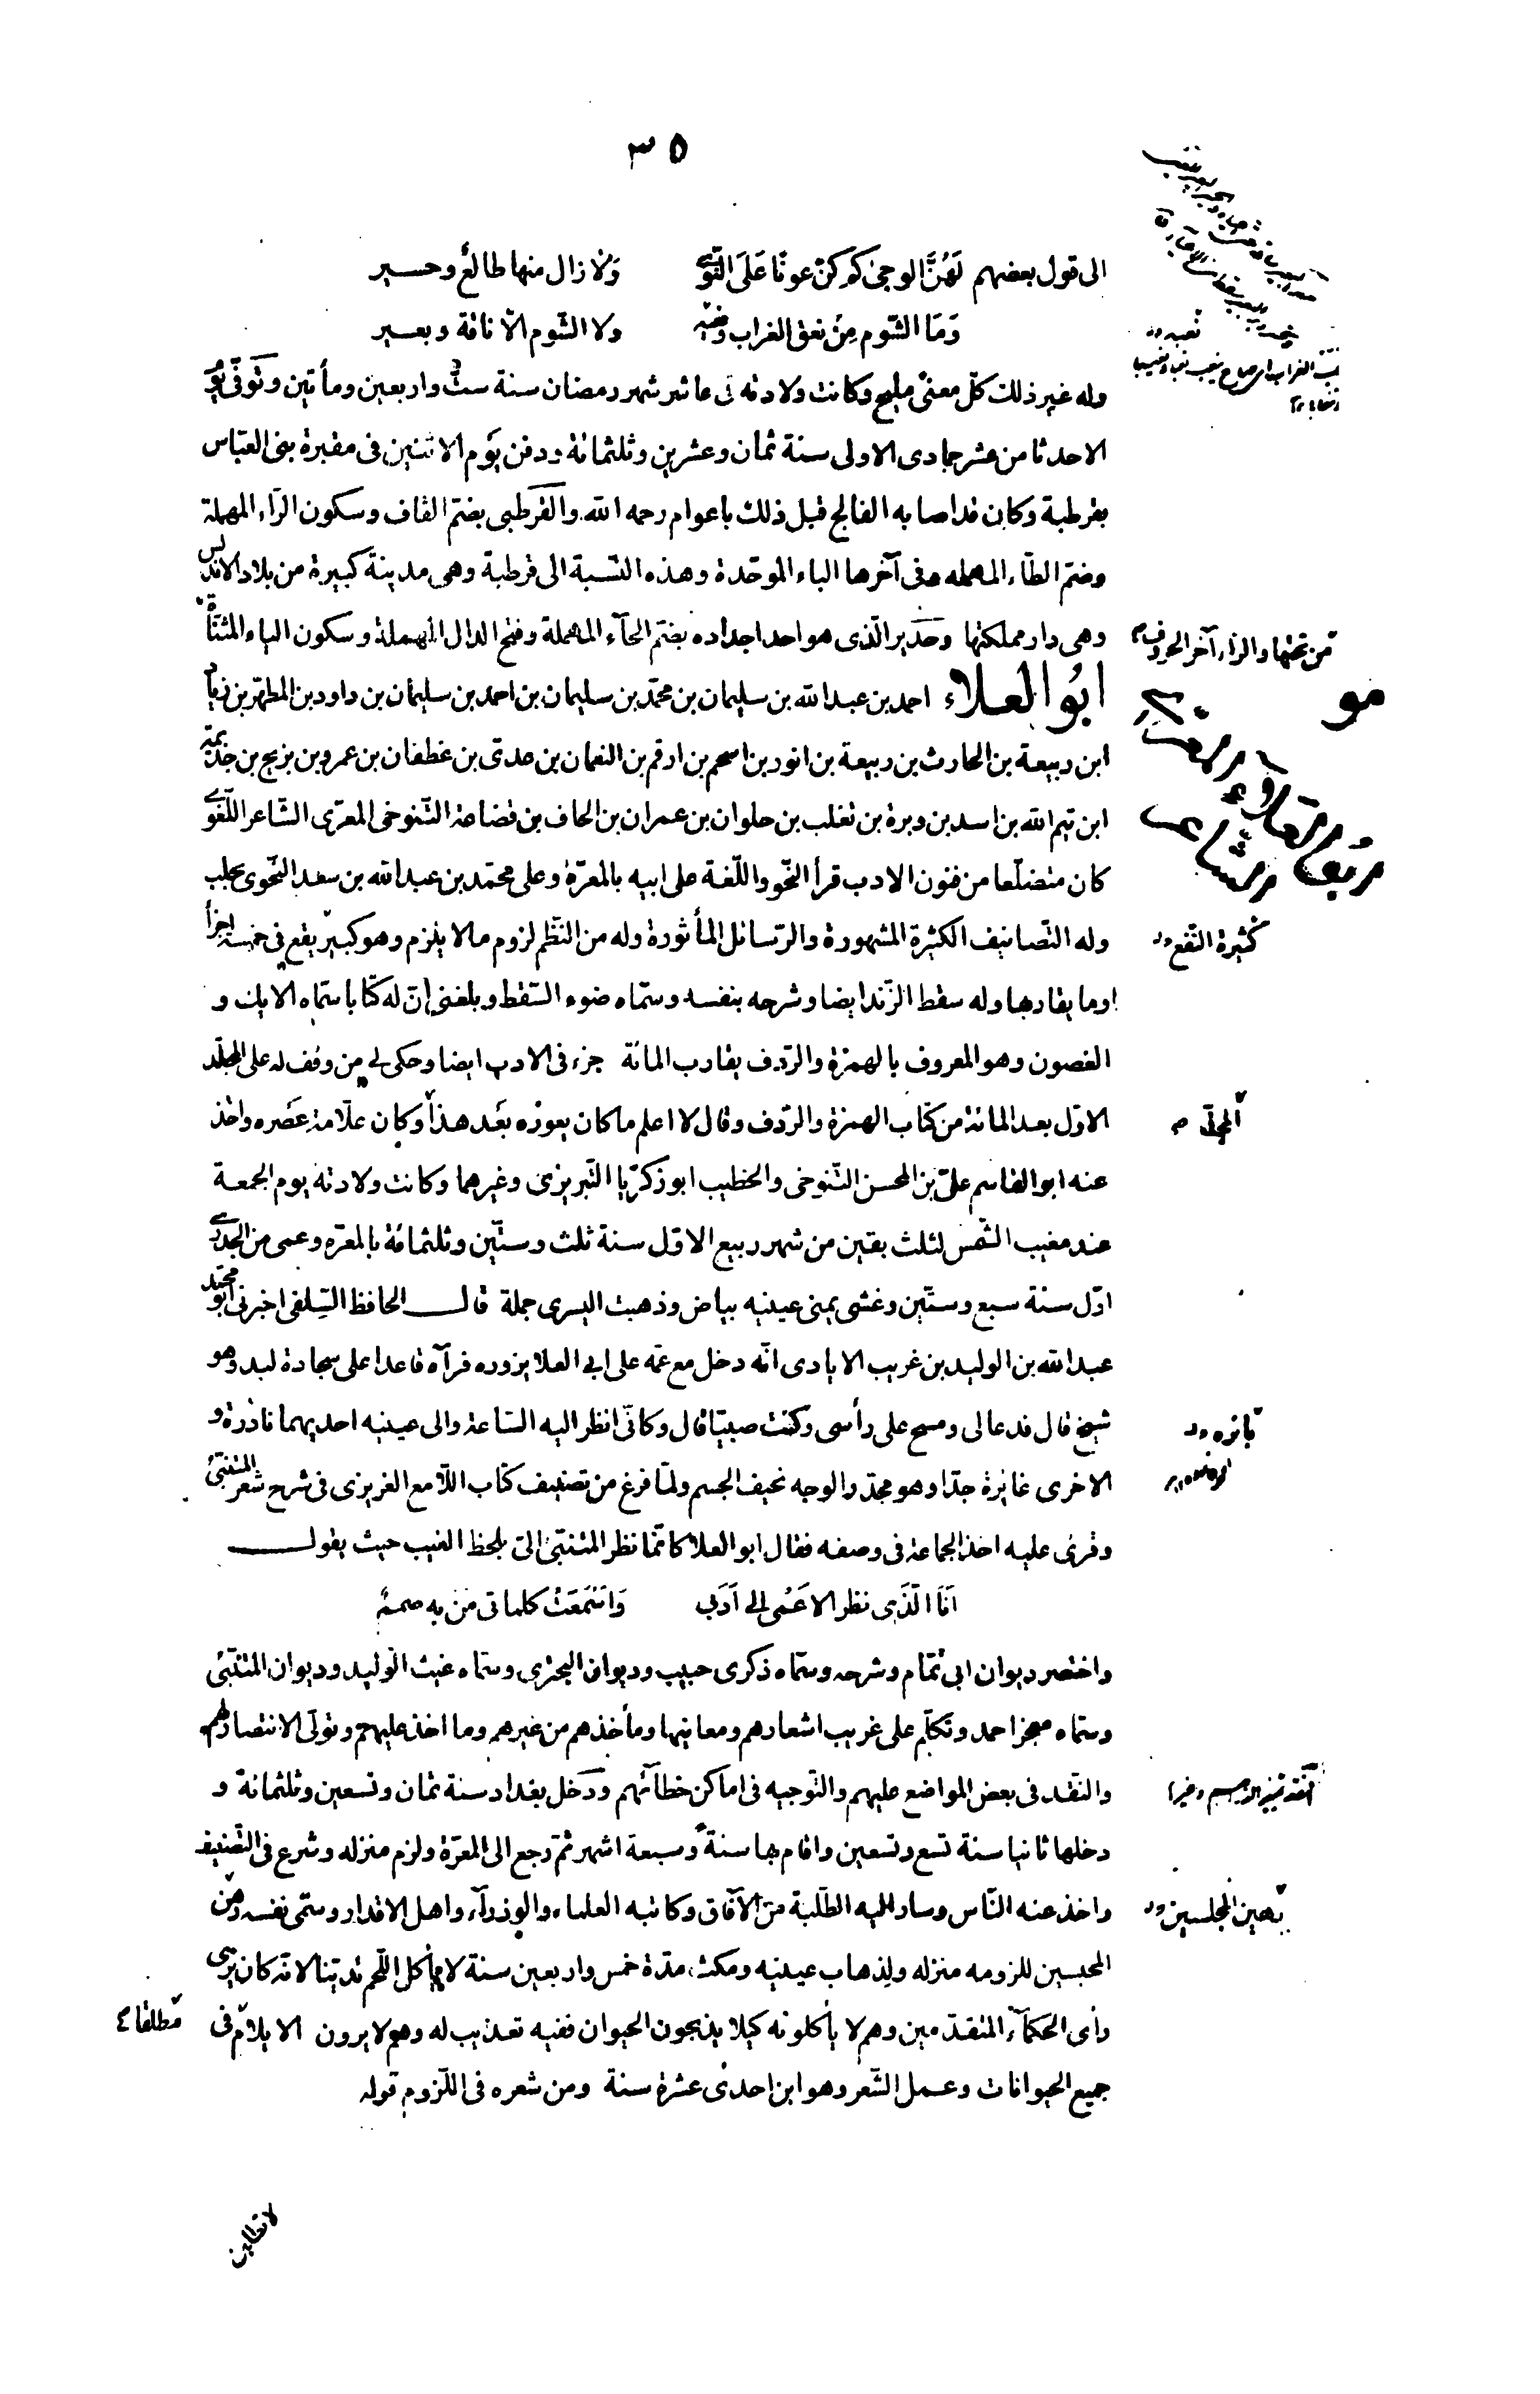 ٣٥
الى قول بعضهم لَهُنَّ الوجى كم كنّ عونًا عَلَى النّوى ولا زال منها طالع وحسير
وَمَا الشّوم مِنْ نعق الغراب ونعبه ولا الشّوم الّا ناقة وبعير
وله غير ذلك كلّ معنىً مليح وكانت ولادته فى عاشر شهر رمضان سنة ستّ واربعين ومأتين وتوفّى يوم
الاحد ثامن عشر جمادى الاولى سنة ثمان وعشرين وثلثمائة ودفن يوم الاثنين فى مقبرة بنى العبّاس
بقرطبة وكان قد اصابه الفالج قبل ذلك باعوام رحمه الله والقرطبى بضمّ القاف وسكون الرّاء المهملة
وضمّ الطّاء المهمله وفى آخرها الباء الموحّدة وهذه النّسبة الى قرطبة وهى مدينة كبيرة من بلاد الاندلس
وهى دار مملكتها وحدير الّذى هو احد اجداده بضمّ الحآء المهملة وفتح الدال المهملة وسكون الياء المثنّاة
من تحتها والراء آخر الحروف
ابُو العلاء احمد بن عبد الله بن سليمان بن محمّد بن سليمان بن احمد بن سليمان بن داود بن المطهّر بن زياد
ابن ربيعة بن الحارث بن ربيعة بن انور بن اسحم بن ارقم بن النعمان بن عدى بن غطفان بن عمرو بن بريح بن جذيمة
ابن تيم الله بن اسد بن وبرة بن تغلب بن حلوان بن عمران بن الحاف بن قضاعة التّنوخى المعرّى الشّاعر اللّغوى
كان متضلّعا من فنون الادب قرأ النّحو واللّغة على ابيه بالمعرّة وعلى محمّد بن عبد الله بن سعد النّحوى بحلب
وله التّصانيف الكثيرة المشهورة والرّسائل المأثورة وله من النّظم لزوم ما لا يلزم وهو كبير يقع فى خمسة اجزأ
او ما يقاربها وله سقط الزّند ايضا وشرحه بنفسه وسمّاه ضوء السّقط وبلغنى انّ له كتابا سمّاه الايك و
الغصون وهو المعروف بالهمزة والرّدف يقارب المائة جزء فى الادب ايضا وحكى لى من وقف له على المجلّد
الاوّل بعد المائة من كتاب الهمزة والرّدف وقال لا اعلم ما كان يعوزه بعد هذا وكان علّامة عصره واخذ
عنه ابو القاسم علىّ بن المحسن التّنوخى والخطيب ابو زكريّا التّبريزى وغيرهما وكانت ولادته يوم الجمعة
عند مغيب الشّمس لثلث بقين من شهر ربيع الاوّل سنة ثلث وستّين وثلثمائة بالمعرّه وعمى من الجدرى
اوّل سنة سبع وستّين وغشى يمنى عينيه بياض وذهبت اليسرى جملة قال الحافظ السّلفى اخبرنى ابو محمّد
عبد الله بن الوليد بن غريب الايادى انّه دخل مع عمّه على ابى العلا يزوره فرآه قاعدا على سجادة لبد وهو
شيخ قال فدعا لى ومسح على رأسى وكنت صبيّا قال وكانّى انظر اليه السّاعة والى عينيه احديهما نادرة و
الاخرى غائرة جدّا وهو مجدّر الوجه نحيف الجسم ولمّا فرغ من تصنيف كتاب اللّامع العزيزى فى شرح شعر المتنبّى
وقرئ عليه اخذ الجماعة فى وصفه فقال ابو العلا كانّما نظر المتنبّى الىّ بلحظ الغيب حيث يقول
اَنَا الّذى نظر الاعمى الى اَدَبى وَاَسْمَعَتْ كلماتى من به صمم
واختصر ديوان ابى تمّام وشرحه وسمّاه ذكرى حبيب وديوان البحترى وسمّاه عبث الوليد وديوان المتنبّى
وسمّاه معجز احمد وتكلّم على غريب اشعارهم ومعانيها ومأخذهم من غيرهم وما اخذ عليهم وتولّى الانتصار لهم
والنّقد فى بعض المواضع عليهم والتّوجيه فى اماكن خطآئهم ودخل بغداد سنة ثمان وتسعين وثلثمائة و
دخلها ثانيا سنة تسع وتسعين واقام بها سنة وسبعة اشهر ثمّ رجع الى المعرّة ولزم منزله وشرع فى التّصنيف
واخذ عنه النّاس وسار اليه الطّلبة من الآفاق وكاتبه العلماء والوزرآء واهل الاقدار وسمّى نفسه رهن
المحبسين للزومه منزله ولذهاب عينيه ومكث مدّة خمس واربعين سنة لا يأكل اللّحم تديّنا لانّه كان يرى
رأى الحكمآء المتقدّمين وهم لا يأكلونه كيلا يذبحون الحيوان ففيه تعذيب له وهم لا يرون الايلام فى
مطلقا
جميع الحيوانات وعمل الشّعر وهو ابن احدى عشرة سنة ومن شعره فى اللّزوم قوله
لا تطلبن
كثيرة النّفع
المجلّد
رهين المجلسين